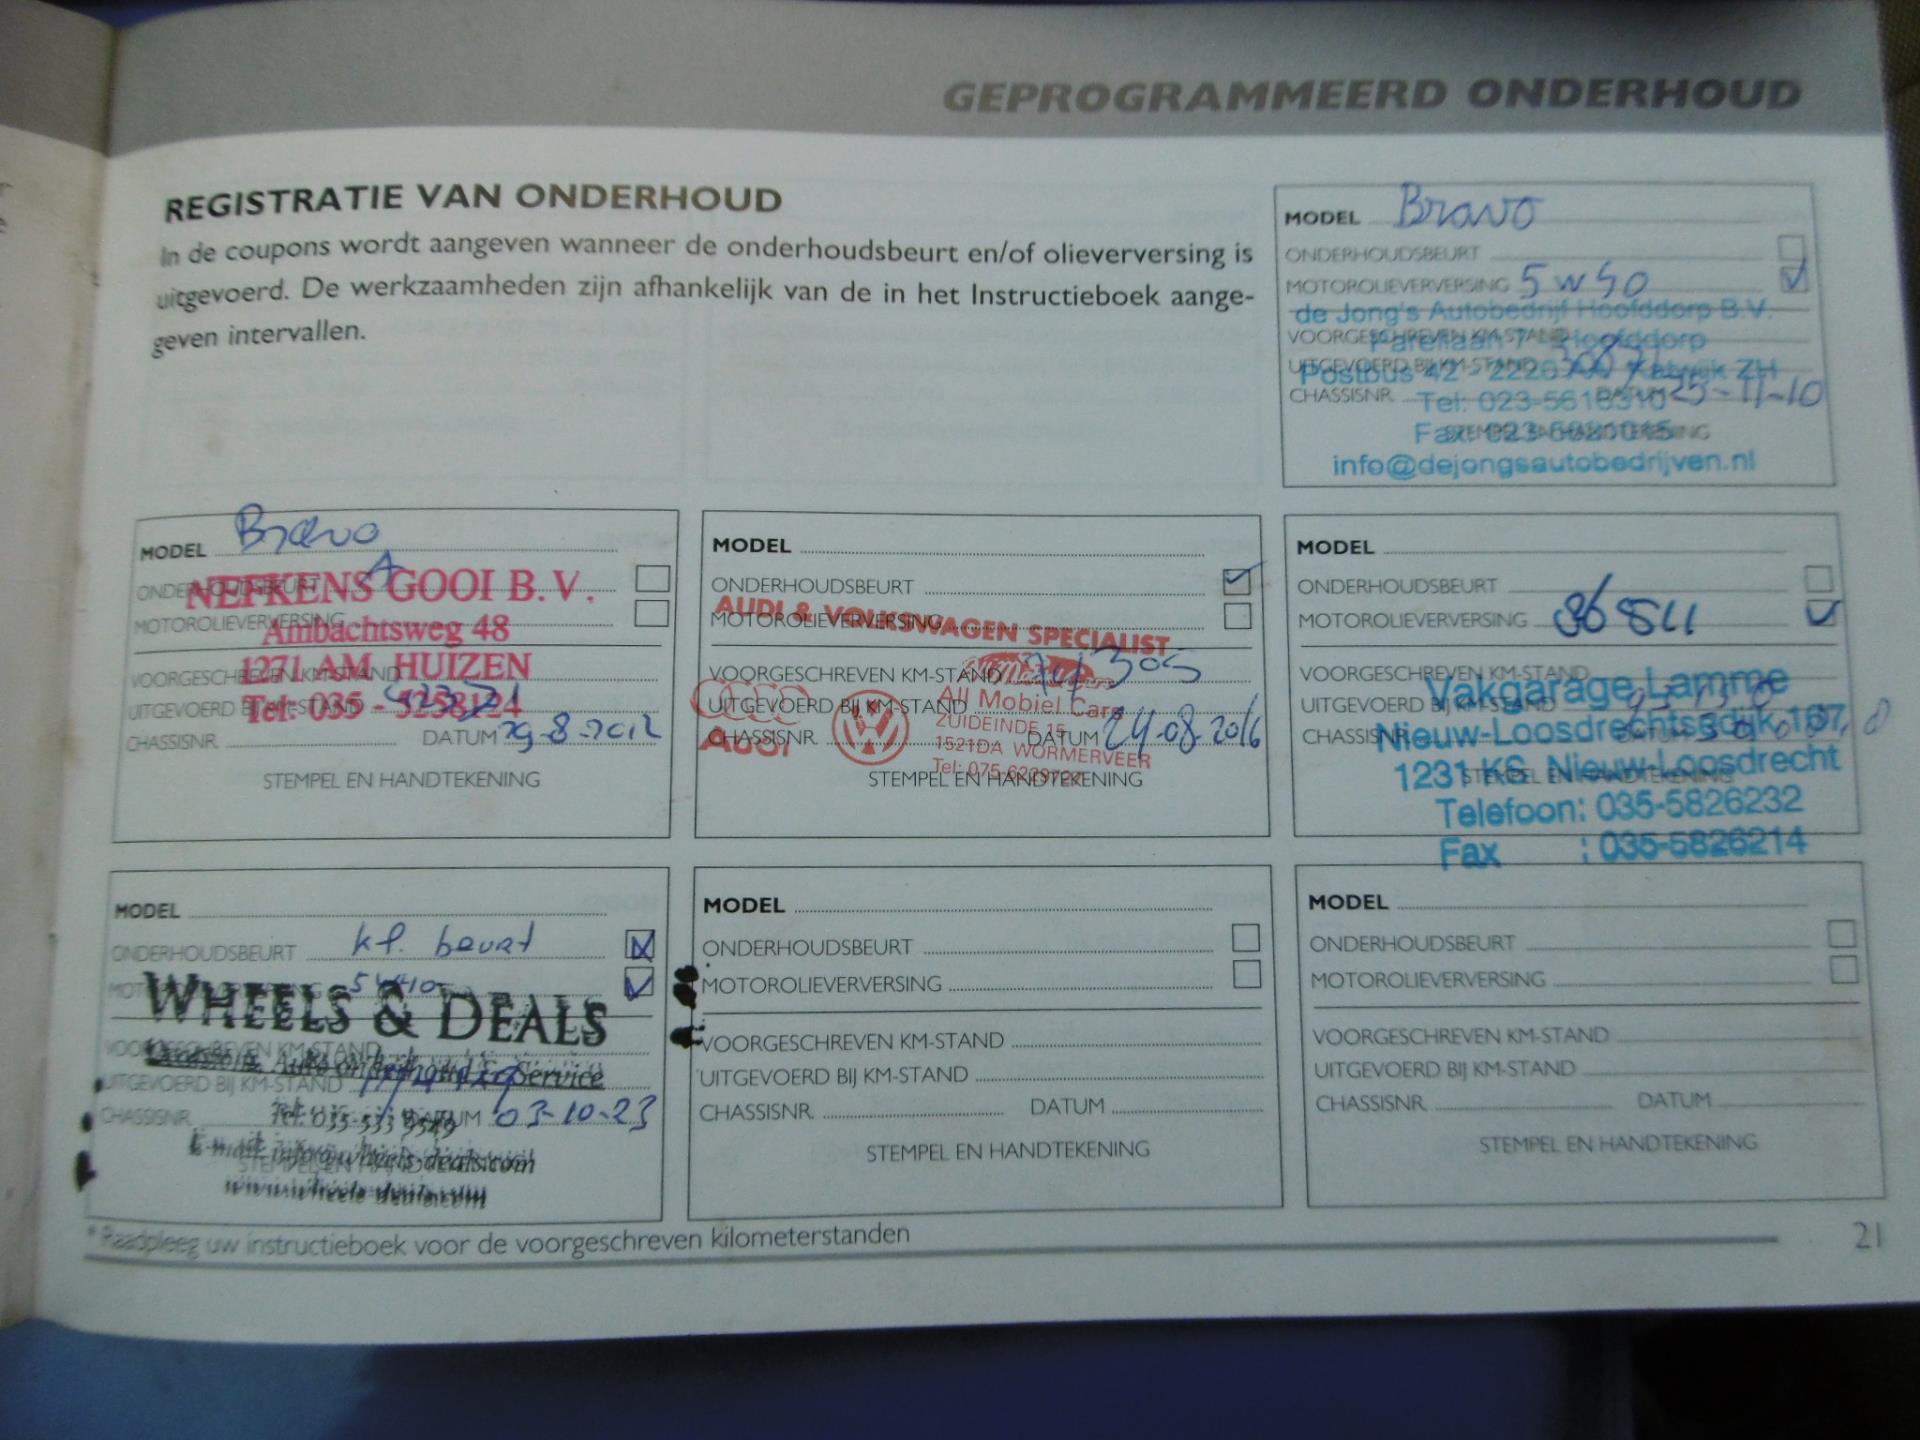 GEPROGRAMMEERD ONDERHOUD
REGISTRATIE VAN ONDERHOUD
In de coupons wordt aangeven wanneer de onderhoudsbeurt en/of olieverversing is
uitgevoerd. De werkzaamheden zijn afhankelijk van de in het Instructieboek aange-
geven intervallen.
MODEL Bravo
ONDERHOUDSBEURT
MOTOROLIEVERVERSING 5w40
de Jong's Autobedrijf Hoofddorp B.V.
VOORGESCHREVEN KM-STAND
Parellaan 7 Hoofddorp
UITGEVOERD BIJ KM-STAND
Postbus 42 Katwijk ZH
CHASSISNR. DATUM 25-11-10
Tel: 023-5616310
STEMPEL EN HANDTEKENING
info@dejongsautobedrijven.nl
MODEL Bravo
ONDERHOUDSBEURT
NEFKENS GOOI B.V.
MOTOROLIEVERVERSING
Ambachtsweg 48
1271 AM HUIZEN
VOORGESCHREVEN KM-STAND
UITGEVOERD BIJ KM-STAND
Tel: 035 - 5258124
CHASSISNR. DATUM 29-8-2012
STEMPEL EN HANDTEKENING
MODEL
ONDERHOUDSBEURT
AUDI & VOLKSWAGEN SPECIALIST
MOTOROLIEVERVERSING
VOORGESCHREVEN KM-STAND
All Mobiel Cars
UITGEVOERD BIJ KM-STAND
ZUIDEINDE 15
Audi
CHASSISNR. DATUM 24-08-2016
1521DA WORMERVEER
Tel: 075-6229724
STEMPEL EN HANDTEKENING
MODEL
ONDERHOUDSBEURT
MOTOROLIEVERVERSING 86511
VOORGESCHREVEN KM-STAND
Vakgarage Lamme
UITGEVOERD BIJ KM-STAND
CHASSISNR.
Nieuw-Loosdrechtsedijk 167
1231 KS Nieuw-Loosdrecht
STEMPEL EN HANDTEKENING
Telefoon: 035-5826232
Fax : 035-5826214
MODEL
ONDERHOUDSBEURT kl. beurt
WHEELS & DEALS
VOORGESCHREVEN KM-STAND
Auto onderhoud & Service
UITGEVOERD BIJ KM-STAND
CHASSISNR. DATUM 03-10-23
Tel: 035-533 9549
E-mail info@wheels-deals.com
STEMPEL EN HANDTEKENING
www.wheels-deals.com
MODEL
ONDERHOUDSBEURT
MOTOROLIEVERVERSING
VOORGESCHREVEN KM-STAND
UITGEVOERD BIJ KM-STAND
CHASSISNR. DATUM
STEMPEL EN HANDTEKENING
MODEL
ONDERHOUDSBEURT
MOTOROLIEVERVERSING
VOORGESCHREVEN KM-STAND
UITGEVOERD BIJ KM-STAND
CHASSISNR. DATUM
STEMPEL EN HANDTEKENING
* Raadpleeg uw instructieboek voor de voorgeschreven kilometerstanden
21